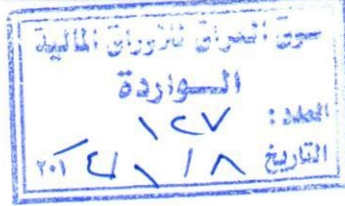 سوق العراق للاوراق المالية
الـواردة
العدد : ١٢٧
التاريخ ٨ / ١ / ٢٠١٤